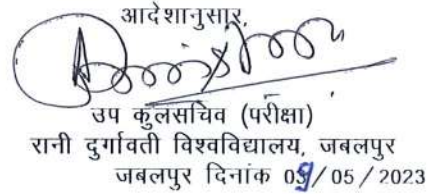 आदेशानुसार,
उप कुलसचिव (परीक्षा)
रानी दुर्गावती विश्वविद्यालय, जबलपुर
जबलपुर दिनांक 09/05/2023